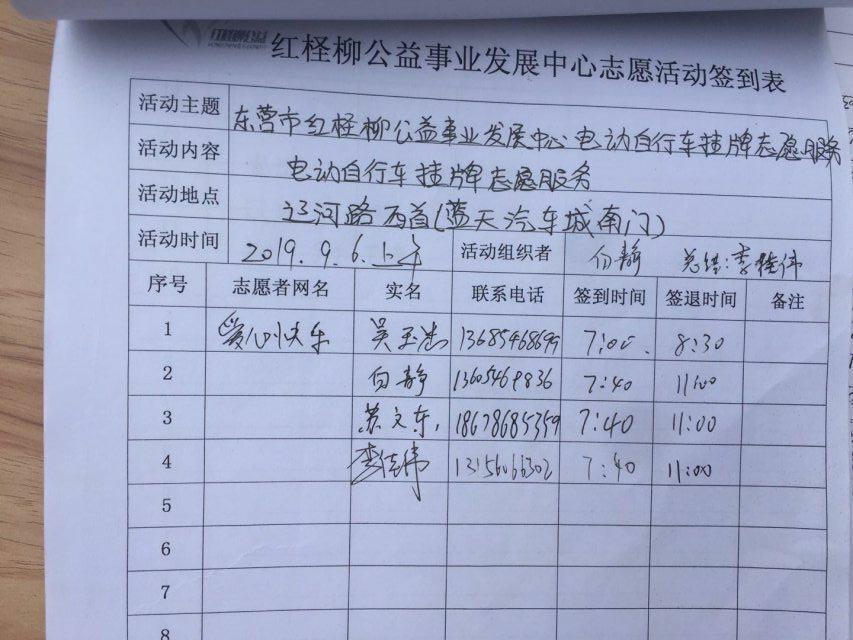 红柽柳公益事业发展中心志愿活动签到表
活动主题 东营市红柽柳公益事业发展中心电动自行车挂牌志愿服务
活动内容 电动自行车挂牌志愿服务
活动地点 运河路西首(蓝天汽车城南门)
活动时间 2019.9.6.上午 活动组织者 白静 总结:李佳伟
序号 志愿者网名 实名 联系电话 签到时间 签退时间 备注
1 爱心快车 吴玉忠 13685468699 7:00 8:30
2 白静 13605469836 7:40 11:00
3 苏文东 18678685359 7:40 11:00
4 李佳伟 13156066302 7:40 11:00
5
6
7
8